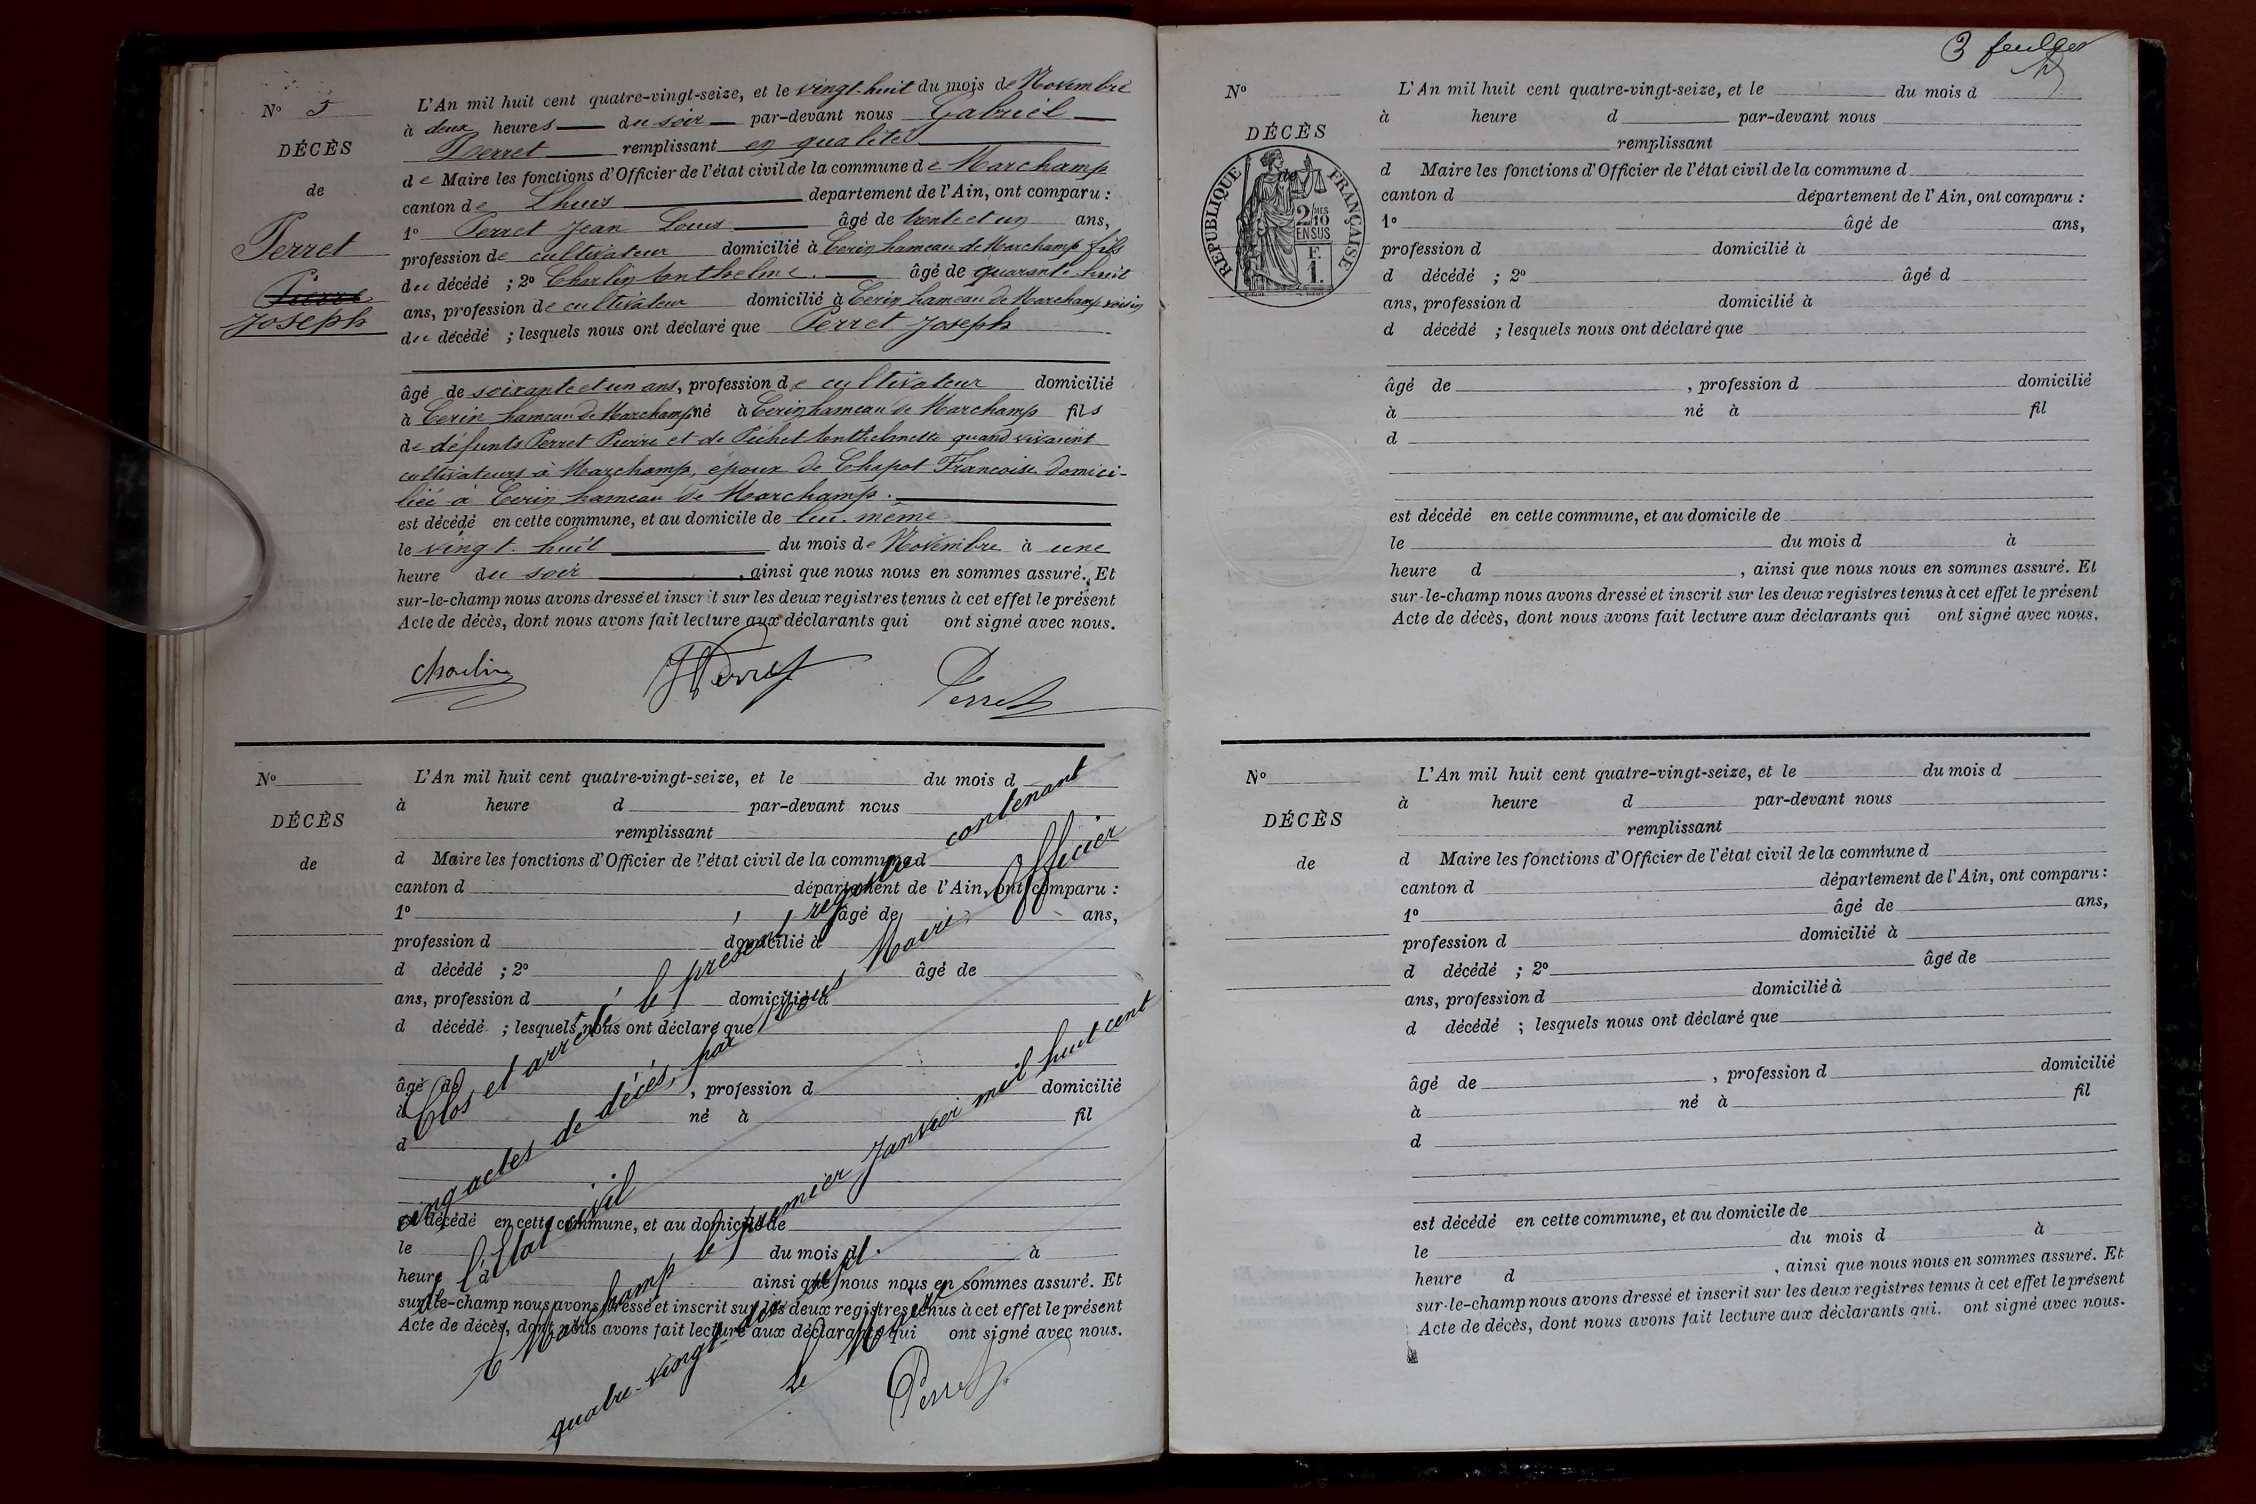 Nº 5
DÉCÈS
de
Perret
Pierre
Joseph
L'An mil huit cent quatre-vingt-seize, et le vingt-huit du mois de Novembre
à deux heures du soir par-devant nous Gabriel
Perret remplissant en qualité
de Maire les fonctions d'Officier de l'état civil de la commune de Marchamp
canton de Lhuis département de l'Ain, ont comparu :
1º Perret Jean Louis âgé de trente et un ans,
profession de cultivateur domicilié à Cerin hameau de Marchamp fils
du décédé ; 2º Charlin Anthelme âgé de quarante huit
ans, profession de cultivateur domicilié à Cerin hameau de Marchamp voisin
du décédé ; lesquels nous ont déclaré que Perret Joseph
âgé de soixante et un ans, profession de cultivateur domicilié
à Cerin hameau de Marchamp né à Cerin hameau de Marchamp fils
de défunts Perret Pierre et de Péchet Anthelmette quand vivaient
cultivateurs à Marchamp, époux de Chapot Francoise domici-
liée à Cerin hameau de Marchamp.
est décédé en cette commune, et au domicile de lui-même
le vingt-huit du mois de Novembre à une
heure du soir, ainsi que nous nous en sommes assuré. Et
sur-le-champ nous avons dressé et inscrit sur les deux registres tenus à cet effet le présent
Acte de décès, dont nous avons fait lecture aux déclarants qui ont signé avec nous.
Charlin JPerret Perret
Nº
DÉCÈS
de
L'An mil huit cent quatre-vingt-seize, et le du mois d
à heure d par-devant nous
remplissant
d Maire les fonctions d'Officier de l'état civil de la commune d
canton d département de l'Ain, ont comparu :
1º âgé de ans,
profession d domicilié à
d décédé ; 2º âgé de
ans, profession d domicilié à
d décédé ; lesquels nous ont déclaré que
âgé de , profession d domicilié
à né à fil
d
est décédé en cette commune, et au domicile de
le du mois d à
heure d ainsi que nous nous en sommes assuré. Et
sur-le-champ nous avons dressé et inscrit sur les deux registres tenus à cet effet le présent
Acte de décès, dont nous avons fait lecture aux déclarants qui ont signé avec nous.
Clos et arrêté le présent registre contenant
cinq actes de décès, par Nous Maire Officier
de l'État civil
à Marchamp le premier Janvier mil huit cent
quatre-vingt-dix sept.
Le Maire
Perret
3 feuillet
Nº
DÉCÈS
de
RÉPUBLIQUE FRANÇAISE
2/10 MES
EN SUS
F.
1.
L'An mil huit cent quatre-vingt-seize, et le du mois d
à heure d par-devant nous
remplissant
d Maire les fonctions d'Officier de l'état civil de la commune d
canton d département de l'Ain, ont comparu :
1º âgé de ans,
profession d domicilié à
d décédé ; 2º âgé d
ans, profession d domicilié à
d décédé ; lesquels nous ont déclaré que
âgé de , profession d domicilié
à né à fil
d
est décédé en cette commune, et au domicile de
le du mois d à
heure d , ainsi que nous nous en sommes assuré. Et
sur-le-champ nous avons dressé et inscrit sur les deux registres tenus à cet effet le présent
Acte de décès, dont nous avons fait lecture aux déclarants qui ont signé avec nous.
Nº
DÉCÈS
de
L'An mil huit cent quatre-vingt-seize, et le du mois d
à heure d par-devant nous
remplissant
d Maire les fonctions d'Officier de l'état civil de la commune d
canton d département de l'Ain, ont comparu :
1º âgé de ans,
profession d domicilié à
d décédé ; 2º âgé de
ans, profession d domicilié à
d décédé ; lesquels nous ont déclaré que
âgé de , profession d domicilié
à né à fil
d
est décédé en cette commune, et au domicile de
le du mois d à
heure d , ainsi que nous nous en sommes assuré. Et
sur-le-champ nous avons dressé et inscrit sur les deux registres tenus à cet effet le présent
Acte de décès, dont nous avons fait lecture aux déclarants qui. ont signé avec nous.